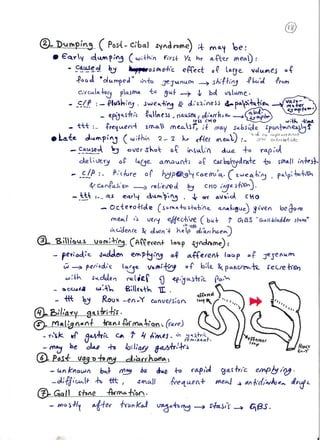 18
② Dumping ( Post-cibal syndrome) it may be:
• Early dumping (within first ½ hr after meal):
- Caused by hyperosmotic effect of large volumes of
food "dumped" into jejunum → shifting fluid from
circulatory plasma to gut → ↓ bd volume.
- C/P :- flushing, sweating & dizziness & palpitation
vaso-motor symptoms
- epigastric fullness, nausea, diarrhea
abd symptoms
- ttt :- frequent small meals, it may subside spontaneously
with time
• Late dumping (within 2-3 hr after meal) :-
- Caused by overshot of insulin due to rapid
delivery of large amounts of carbohydrate to small intest.
- C/P :- Picture of hypoglycaemia. (sweating, palpitation
& confusion → relieved by CHO ingestion).
- ttt :- as early dumping, & avoid CHO
- Octerotide (somatostatine analogue) given before
meal is very effective (but ↑ GBS "Gall bladder stone"
incidence & don't help diarrhoea)
③ Billious vomiting (Afferent loop syndrome):
- periodic sudden emptying of afferent loop of jejenum
→ periodic large vomiting of bile & pancreatic secretion
with sudden relief of epigastric pain
- occured with Billroth II.
- ttt by Roux-en-Y conversion
afferent loop
efferent loop
Roux en-Y
④ Biliary gastritis.
⑤ Malignant transformation (rare)
- risk of gastric ca ↑ 4 times in gastric remnant.
- may be due to biliary gastritis
⑥ Post vagotomy diarrhoea:
- unknown but may be due to rapid gastric emptying.
- difficult to ttt, small frequent meal & antidiarrhea drugs
⑦ Gall stone formation:
- mostly after truncal vagotomy → stasis → GBS.